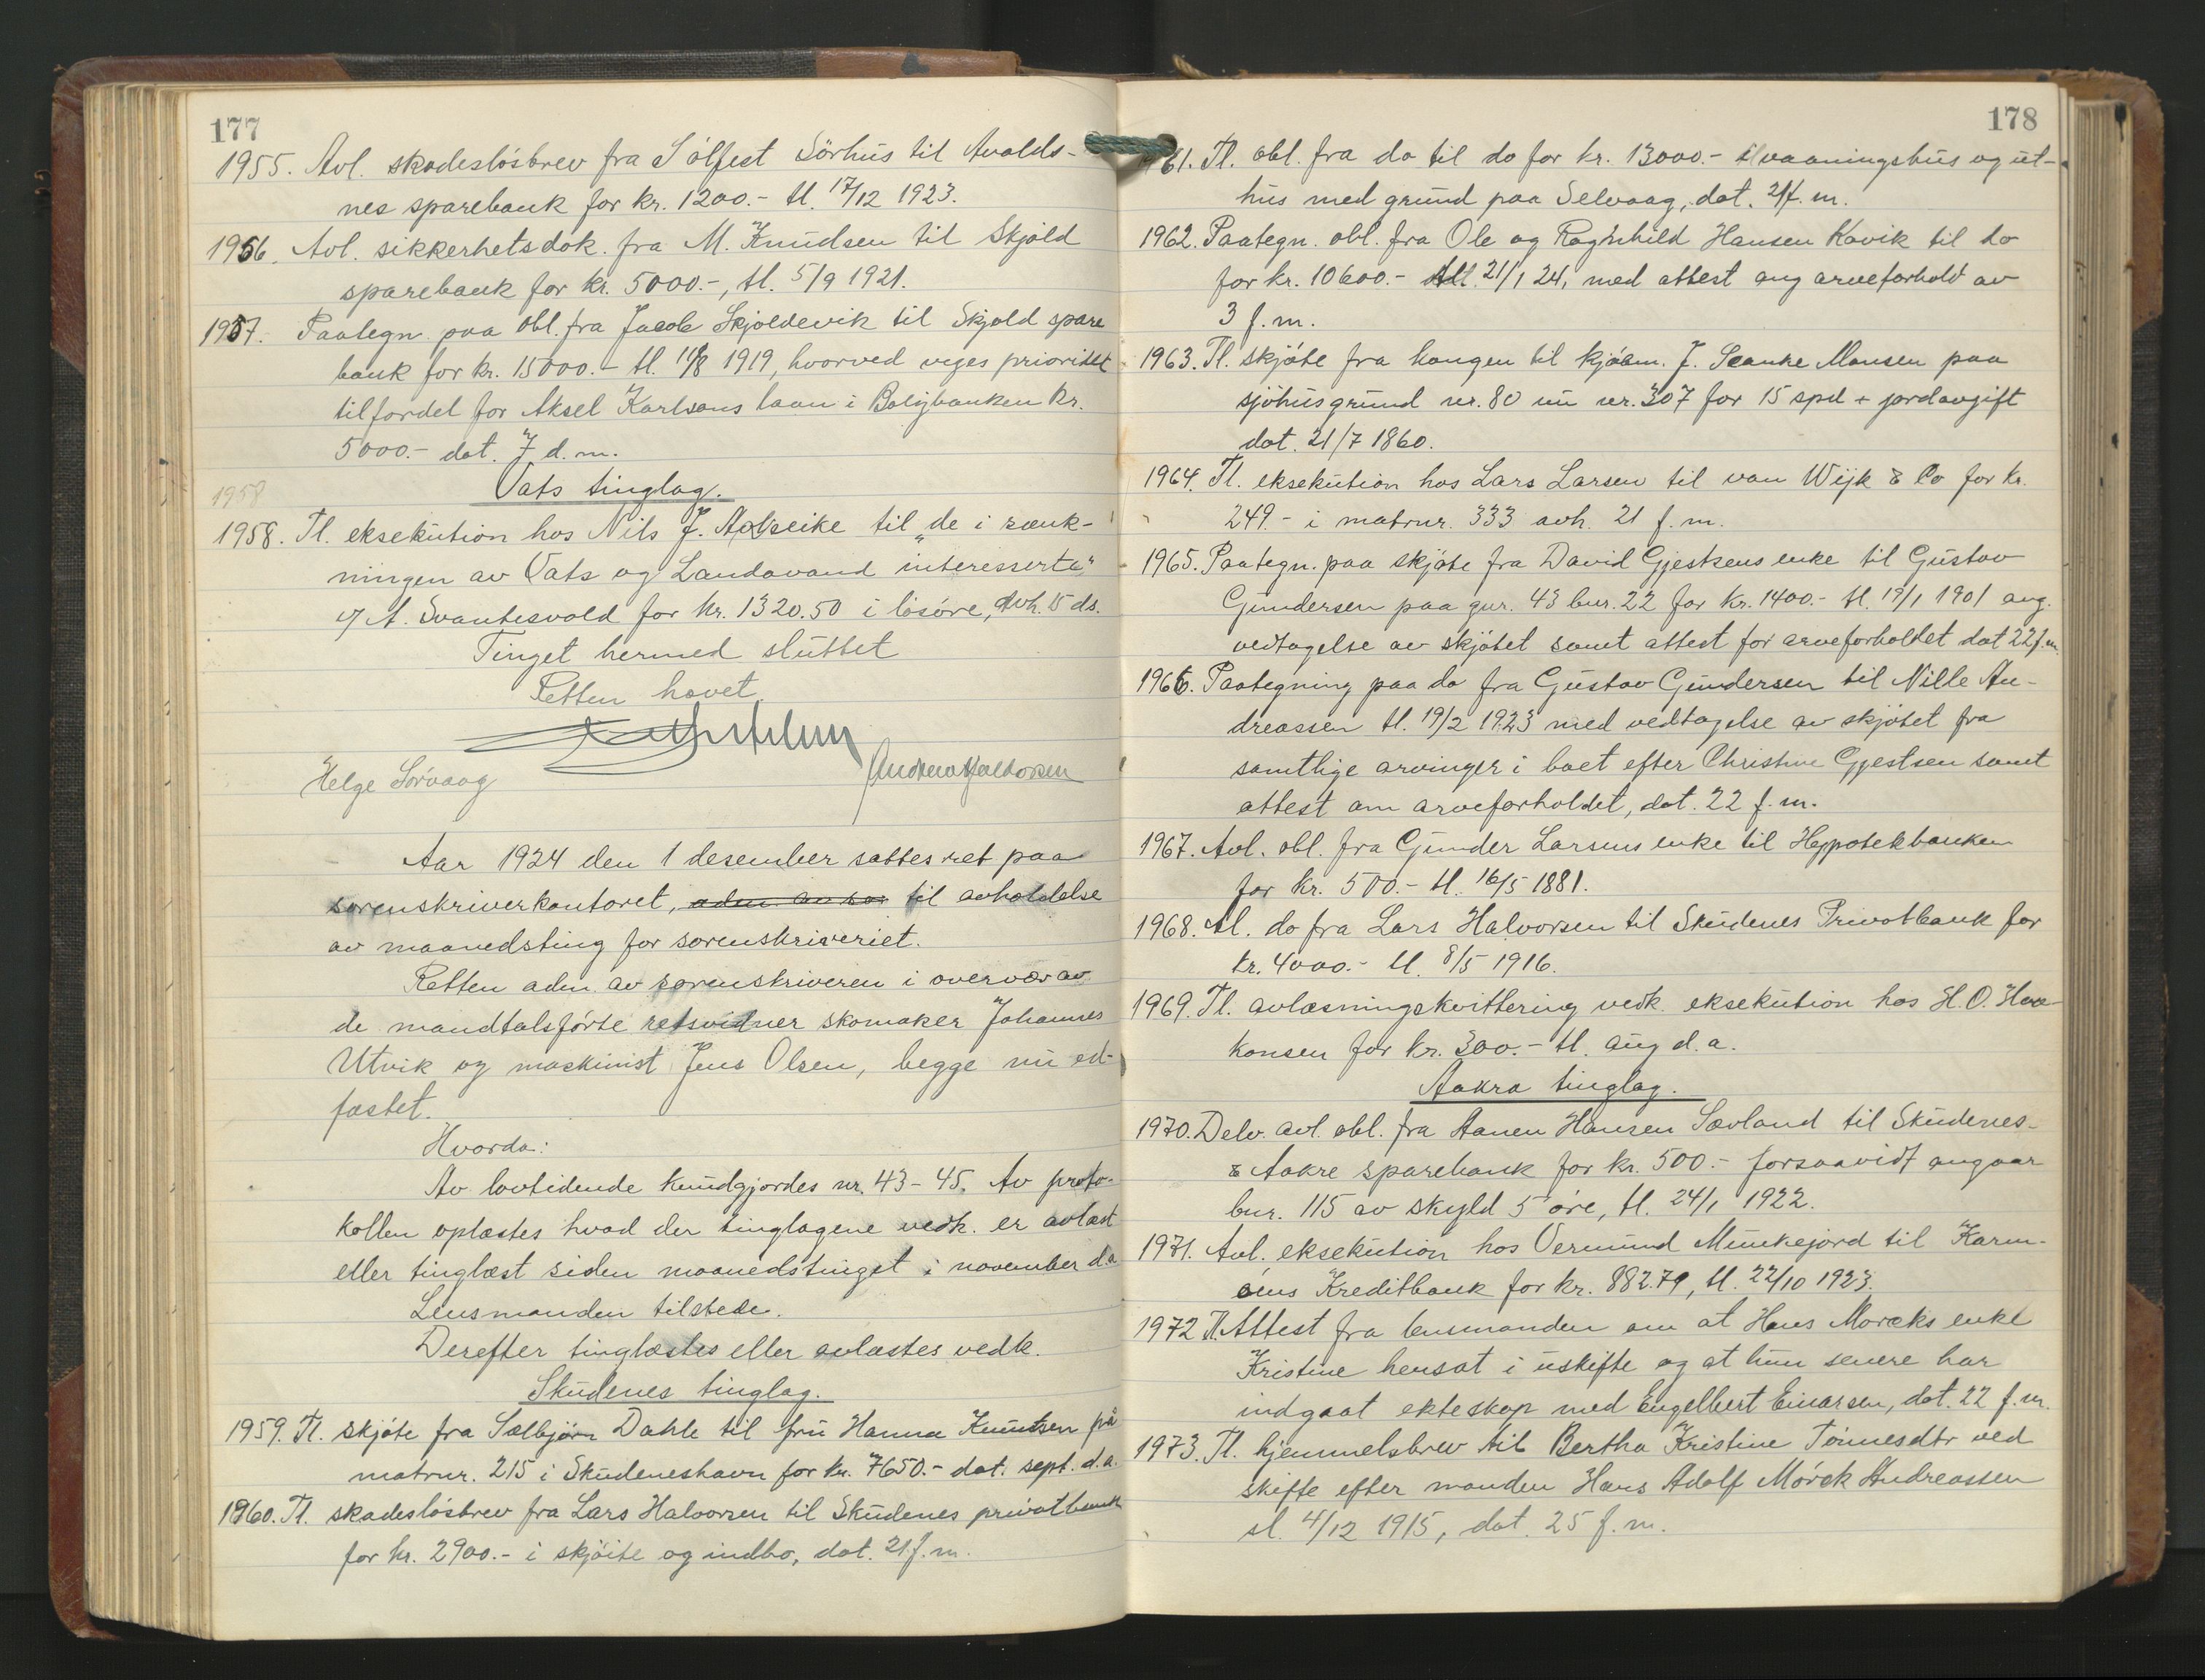 177
1955. Avl. skadesløsbrev fra Sólfest Sörhus til Avalds-
nes sparebank for kr. 1200.- tl. 17/12 1923.
1956. Avl. sikkerhetsdok. fra M. Knudsen til Skjold
sparebank for kr. 5000.-, tl. 5/9 1921.
1957. Paategn. paa obl. fra Jacob Skjoldevik til Skjold spare
bank for kr. 15000.- tl. 11/8 1919, hvorved viges prioritet
tilfordel for Aksel Karlsens laan i Boligbanken kr.
5000.- dat. 7 d.m.
1958
Vats tinglag.
1958. Tl. eksekution hos Nils J. til "de i sænk-
ningen av Vats og Landavand interesserte"
v/ A. Svantesvold for kr. 1320.50 i løsøre, avh. 15 ds.
Tinget hermed sluttet
Retten hævet
Helge Sørvaag
Aar 1924 den 1 desember sattes ret paa
sorenskriverkontoret, til avholdelse
av maanedsting for sorenskriveriet.
Retten adm. av sorenskriveren i overvær av
de mandtalsførte retsvidner skomaker Johannes
Utvik og maskinist Jens Olsen, begge nu ed-
fæstet.
Hvorda:
Av lovtidende kundgjordes nr. 43-45. Av proto-
kollen oplæstes hvad der tinglagene vedk. er avlæst
eller tinglæst siden maanedstinget i november d.a
Lensmanden tilstede.
Derefter tinglæstes eller avlæstes vedk.
Skudenes tinglag.
1959. Tl. skjøte fra Sælbjørn Dahle til fru Hanna Knutsen på
matrnr. 215 i Skudeneshavn for kr. 7650.- dat. sept. d.a.
1960. Tl. skadesløsbrev fra Lars Halvorsen til Skudenes privatbank
for kr. 2900.- i skjøite og indbo, dat. 21 f.m.
178
1961. Tl. obl. fra do til do for kr. 13000.- i vaaningshus og ut-
hus med grund paa Selvaag, dat. 21 f.m.
1962. Paategn. obl. fra Ole og Raghnhild Hansen Kavik til do
for kr. 10600.- tl. 21/1 24, med attest ang arveforhold av
3 f.m.
1963. Tl. skjøte fra kongen til kjøbm. J. Scanke Monsen paa
sjøhusgrund nr. 80 nu nr. 307 for 15 spd + jordavgift
dat. 21/7 1860.
1964. Tl. eksekution hos Lars Larsen til van Wijk & Co for kr.
249.- i matrnr. 333 avh. 21 f.m.
1965. Paategn. paa skjøte fra David Gjestsens enke til Gustav
Gundersen paa gnr. 43 bnr. 22 for kr. 1400.- tl. 19/1 1901 ang.
vedtagelse av skjøtet samt attest for arveforholdet dat 22 f.m.
1966. Paategning paa do fra Gustav Gundersen til Nille An-
dreassen tl. 19/2 1923 med vedtagelse av skjøtet fra
samtlige arvinger i boet efter Christine Gjestsen samt
attest om arveforholdet, dat. 22 f.m.
1967. Avl. obl. fra Gunder Larsens enke til Hyppotekbanken
for kr. 500.- tl. 16/5 1881.
1968. Avl. do fra Lars Halvorsen til Skudenes Privatbank for
kr. 4000.- tl. 8/5 1916.
1969. Tl. avlæsningskvittering vedk. eksekution hos H.O. Haa-
konsen for kr. 300.- tl. aug d.a.
Aakra tinglag.
1970. Delv. avl. obl. fra Hanen Hansen Sævland til Skudenes-
& Aakre sparebank for kr. 500.- forsaavidt angaar
bnr. 115 av skyld 5 øre, tl. 24/1 1922.
1971. Avl. eksekution hos Vermund Munkejord til Karm-
øens Kreditbank for kr. 882.79, tl. 22/10 1923.
1972 Tl. Attest fra lensmanden om at Hans Mørcks enke
Kristine hensat i uskifte og at hun senere har
indgaat ekteskap med Engelbert Einarsen, dat. 22 f.m.
1973. Tl. hjemmelsbrev til Bertha Kristine Tønnesdtr ved
skifte efter manden Hans Adolf Mørck Andreassen
sl. 4/12 1915, dat. 25 f.m.